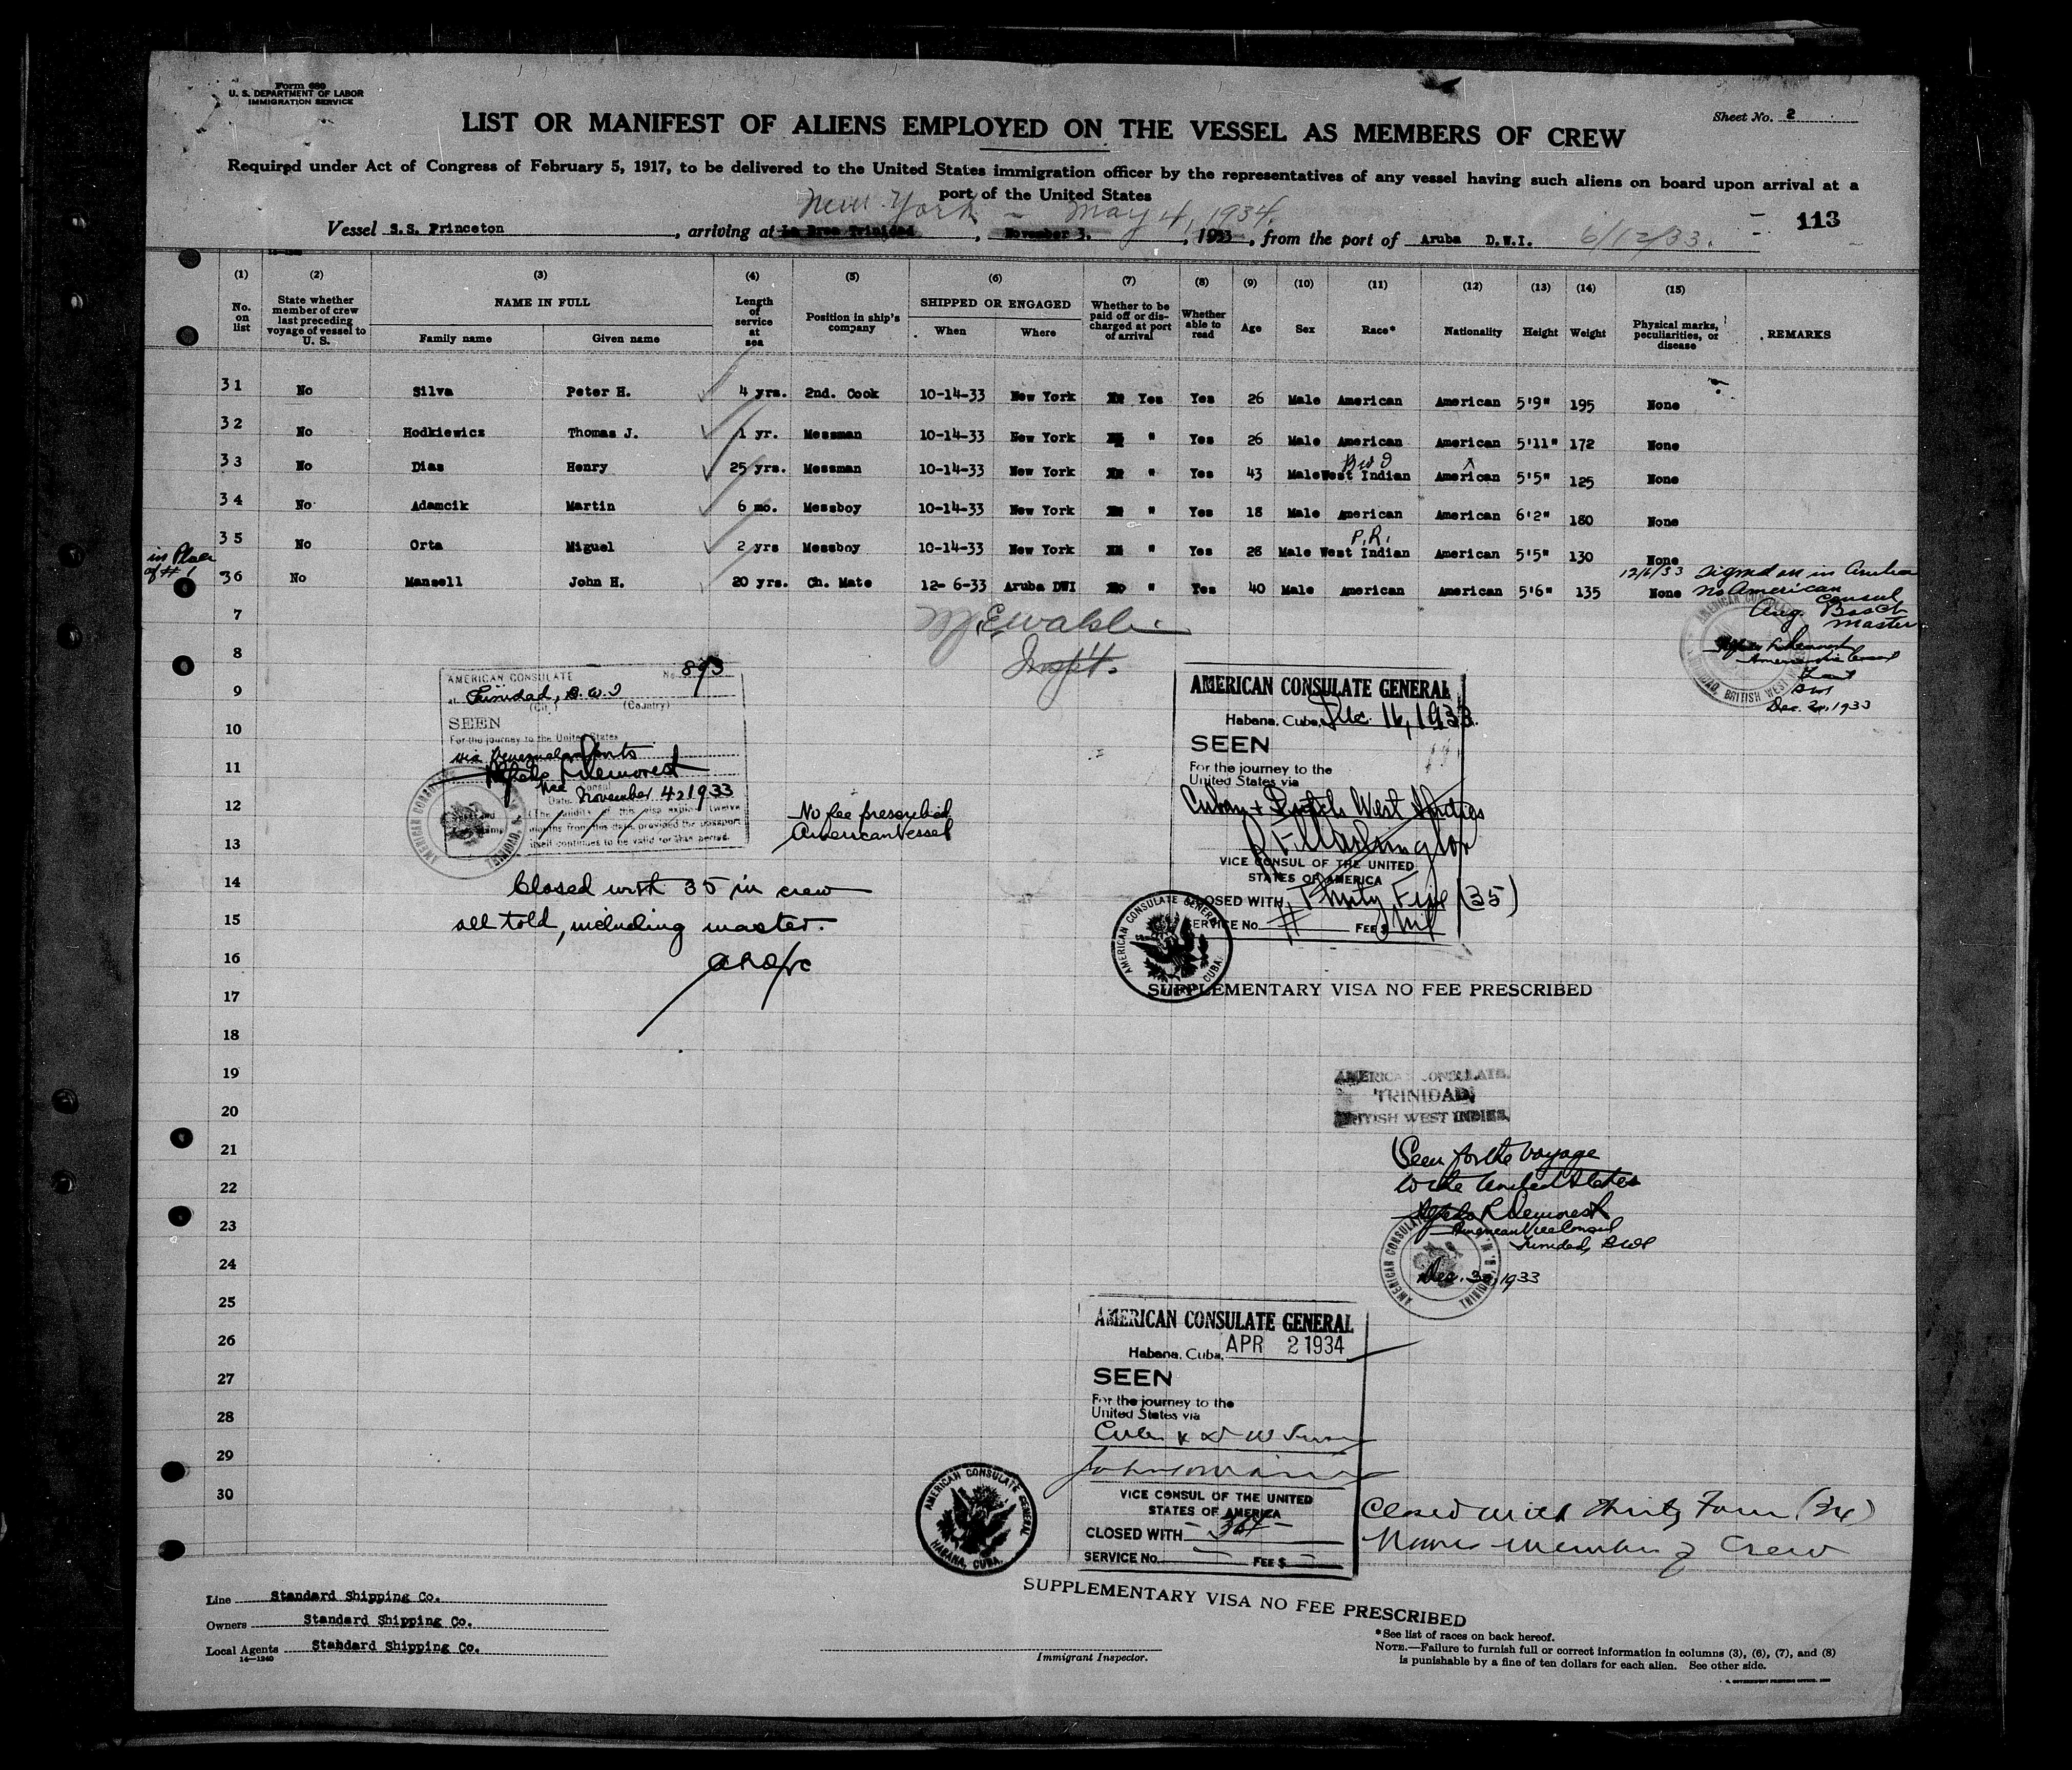 Form 680
U. S. DEPARTMENT OF LABOR
IMMIGRATION SERVICE
Sheet No. 2
LIST OR MANIFEST OF ALIENS EMPLOYED ON THE VESSEL AS MEMBERS OF CREW
Required under Act of Congress of February 5, 1917, to be delivered to the United States immigration officer by the representatives of any vessel having such aliens on board upon arrival at a
port of the United States
New York - May 4, 1934.
113
Vessel S.S. Princeton, arriving at La Brea Trinidad, November 3., 1933, from the port of Aruba D.W.I. 6/12/33.
(1) (2) (3) (4) (5) (6) (7) (8) (9) (10) (11) (12) (13) (14) (15)
No. on list
State whether member of crew last preceding voyage of vessel to U. S.
NAME IN FULL
Family name
Given name
Length of service at sea
Position in ship's company
SHIPPED OR ENGAGED
When
Where
Whether to be paid off or discharged at port of arrival
Whether able to read
Age
Sex
Race*
Nationality
Height
Weight
Physical marks, peculiarities, or disease
REMARKS
31 No Silva Peter H. 4 yrs. 2nd. Cook 10-14-33 New York Yes Yes 26 Male American American 5'9" 195 None
32 No Hodkiewicz Thomas J. 1 yr. Messman 10-14-33 New York " Yes 26 Male American American 5'11" 172 None
BWI
33 No Dias Henry 25 yrs. Messman 10-14-33 New York " Yes 43 Male West Indian American 5'5" 125 None
34 No Adamcik Martin 6 mo. Messboy 10-14-33 New York " Yes 18 Male American American 6'2" 180 None
P.R.
35 No Orta Miguel 2 yrs Messboy 10-14-33 New York " Yes 28 Male West Indian American 5'5" 130 None
in Place of #1
36 No Mansell John H. 20 yrs. Ch. Mate 12-6-33 Aruba DWI No " Yes 40 Male American American 5'6" 135 None
12/6/33 Signed on in Aruba
No American
Consul
Aug.
Master
Dec. 1933
7
8
9
10
11
12
13
14
15
16
17
18
19
20
21
22
23
24
25
26
27
28
29
30
Walsh
Insp't.
AMERICAN CONSULATE No. 893
at Trinidad, B.W.I
(City) (Country)
SEEN
For the journey to the United States
via Venezuelan Ports
Vice Consul
Date November 4, 1933
No fee prescribed
American Vessel
Closed with 35 in crew
all told, including master.
AMERICAN CONSULATE GENERAL
Habana, Cuba, Dec. 16, 1933.
SEEN
For the journey to the
United States via
Cuban & Dutch West Indies
VICE CONSUL OF THE UNITED
STATES OF AMERICA
CLOSED WITH Thirty Five (35)
SERVICE No. # FEE $ Nil
AMERICAN CONSULATE GENERAL
CUBA
SUPPLEMENTARY VISA NO FEE PRESCRIBED
AMERICAN CONSULATE,
TRINIDAD,
BRITISH WEST INDIES.
Seen for the voyage
to the United States
American Vice Consul
Trinidad, BWI
Dec. 30, 1933
AMERICAN CONSULATE GENERAL
Habana, Cuba, APR 2 1934
SEEN
For the journey to the
United States via
VICE CONSUL OF THE UNITED
STATES OF AMERICA
CLOSED WITH 34
SERVICE No. FEE $
AMERICAN CONSULATE GENERAL
HABANA, CUBA.
Closed with Thirty Four (34)
Crew
SUPPLEMENTARY VISA NO FEE PRESCRIBED
Line Standard Shipping Co.
Owners Standard Shipping Co.
Local Agents Standard Shipping Co.
14-1240
Immigrant Inspector.
*See list of races on back hereof.
NOTE.—Failure to furnish full or correct information in columns (3), (6), (7), and (8)
is punishable by a fine of ten dollars for each alien. See other side.